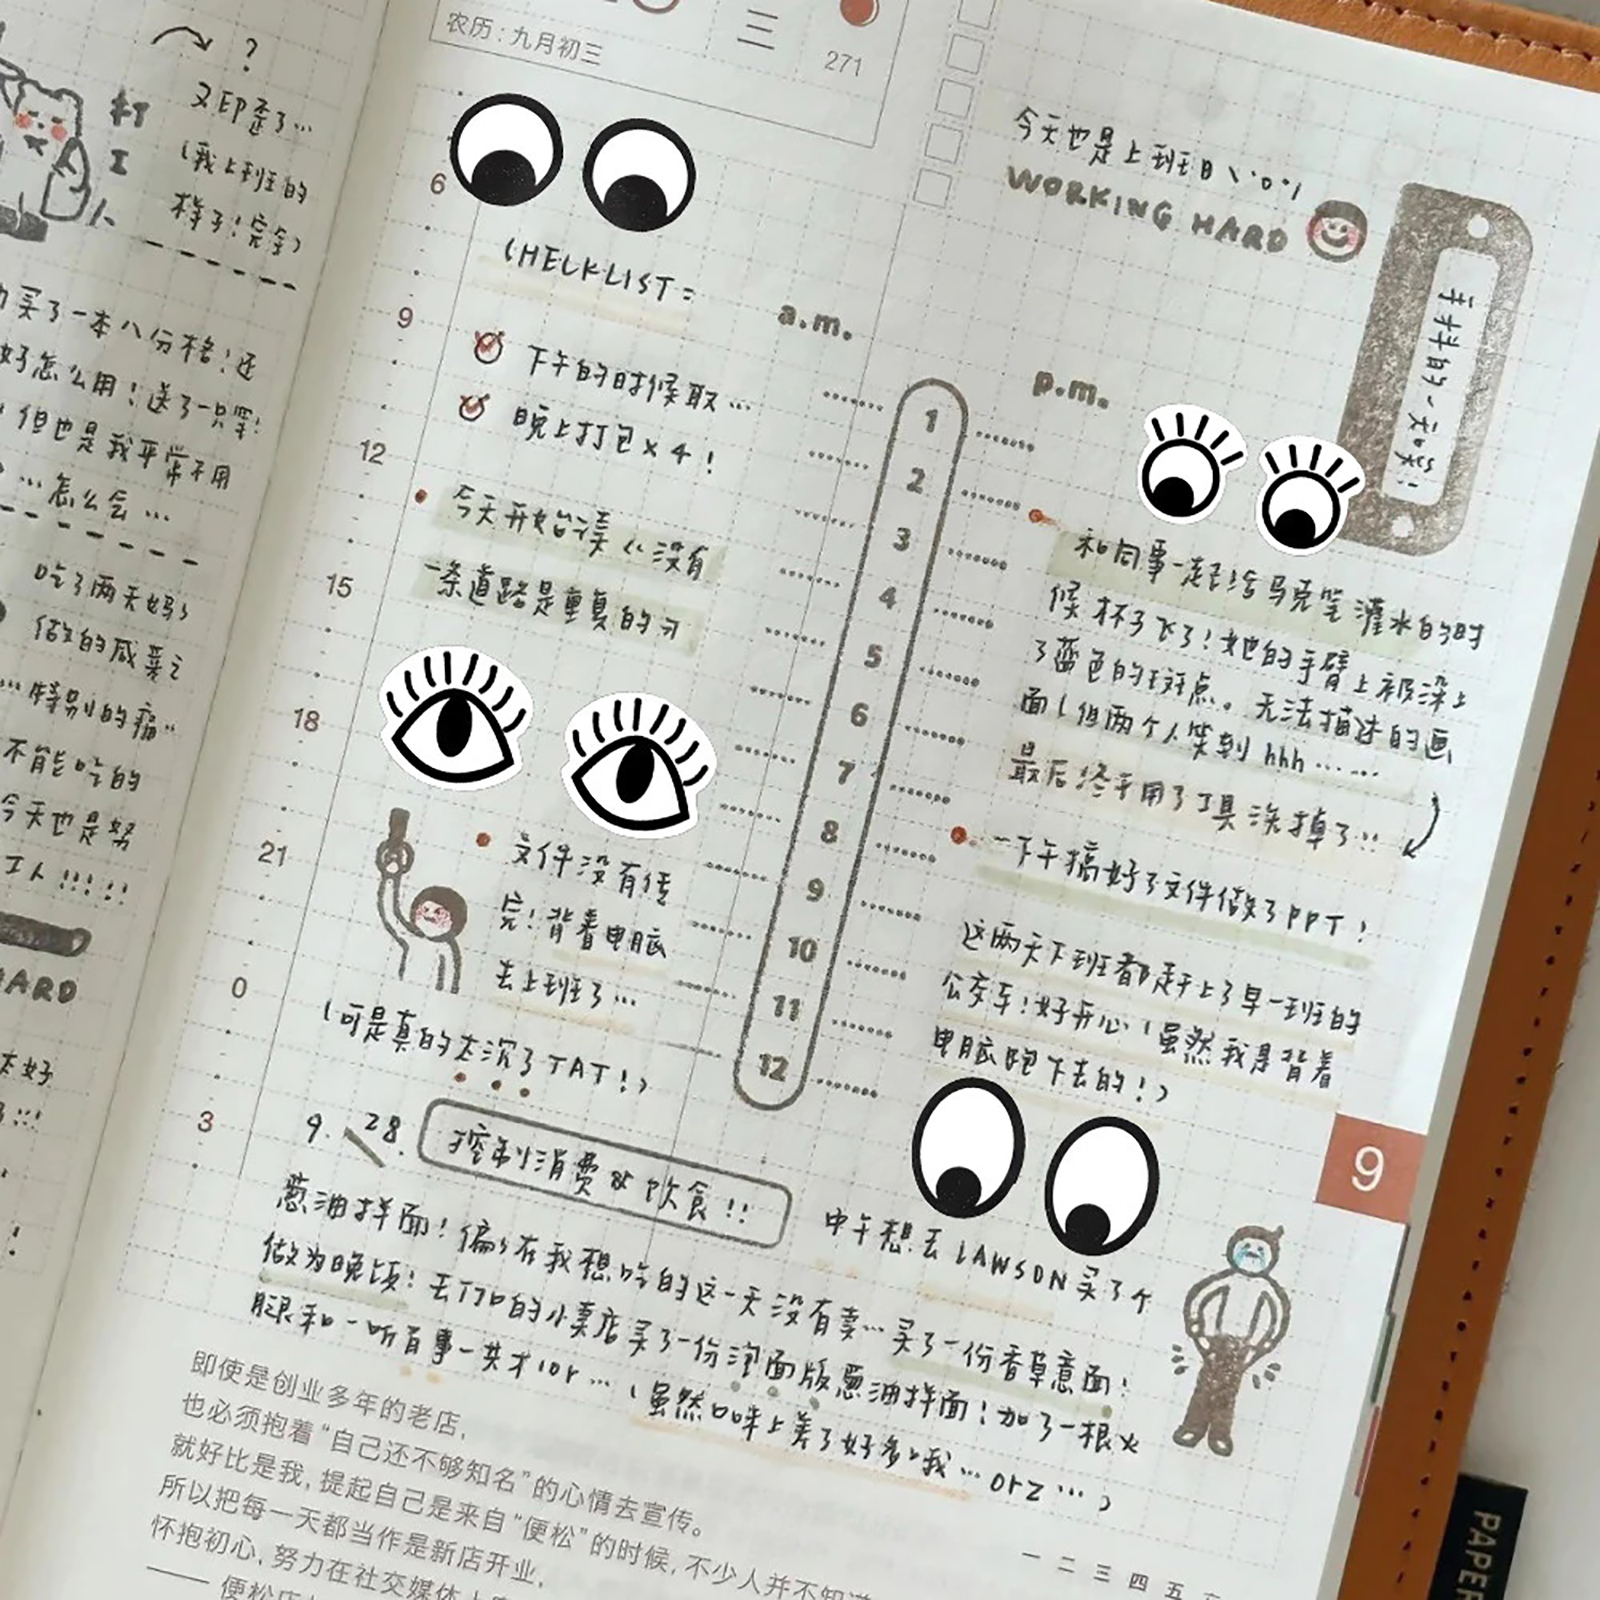 ?
又印歪了…
(我上班的
样子!完全)
打
工
人
买了一本八分格!还
好怎么用!送了一只笔!
但也是我平常不用
…怎么会…
吃了两天妈妈
做的咸菜
…特别的痛
不能吃的
今天也是努
工人!!!!!
HARD
三
农历:九月初三
271
6
9
12
15
18
21
0
3
CHECKLIST:
下午的时候取…
晚上打包×4!
今天开始读《没有
一条道路是重复的》
文件没有传
完!背着电脑
去上班了…
(可是真的太沉了TAT!)
a.m.
p.m.
1
2
3
4
5
6
7
8
9
10
11
12
今天也是上班日\°o°/
WORKING HARD
抖抖的一天啦!
和同事一起给马克笔灌水的时
候杯子飞了!她的手臂上被染上
了蓝色的斑点。无法描述的画
面(但两个人笑到hhh……
最后终于用了工具洗掉了…
一下午搞好了文件做了PPT!
这两天下班都赶上了早一班的
公交车!好开心(虽然我是背着
电脑跑下去的!)
9
9.28.
控制消费&饮食!!
中午想去LAWSON买了个
葱油拌面!偏偏在我想吃的这一天没有卖…买了一份香草意面!
做为晚饭!去门口的小卖店买了一份泡面版葱油拌面!加了一根火
腿和一听百事一共才10r…(虽然口味上差了好多哦…orz…)
即使是创业多年的老店,
也必须抱着“自己还不够知名”的心情去宣传。
就好比是我,提起自己是来自“便松”的时候,不少人并不知道
所以把每一天都当作是新店开业,
怀抱初心,努力在社交媒体上
—— 便松店
一 二 三 四 五
PAPER